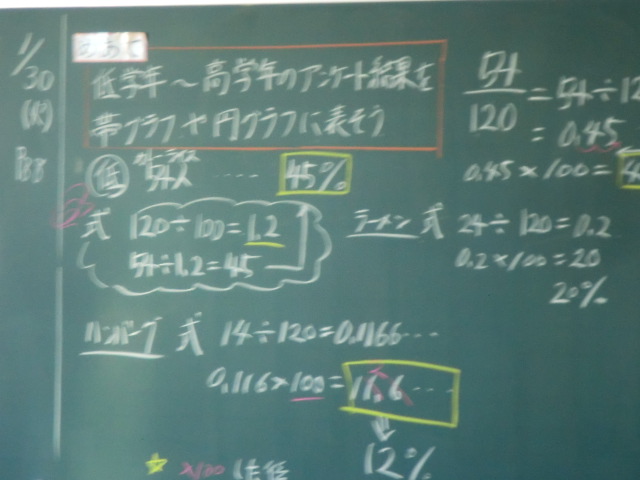 1/30
(火)
めあて
低学年～高学年のアンケート結果を
帯グラフや円グラフに表そう
54/120 = 54÷12
= 0.45
0.45×100=
低 カレーライス 54人 ‥‥ 45%
式 120÷100=1.2
54÷1.2=45
ラーメン 式 24÷120=0.2
0.2×100=20
20%
ハンバーグ 式 14÷120=0.1166‥‥
0.116×100=11.6‥‥
12%
×100